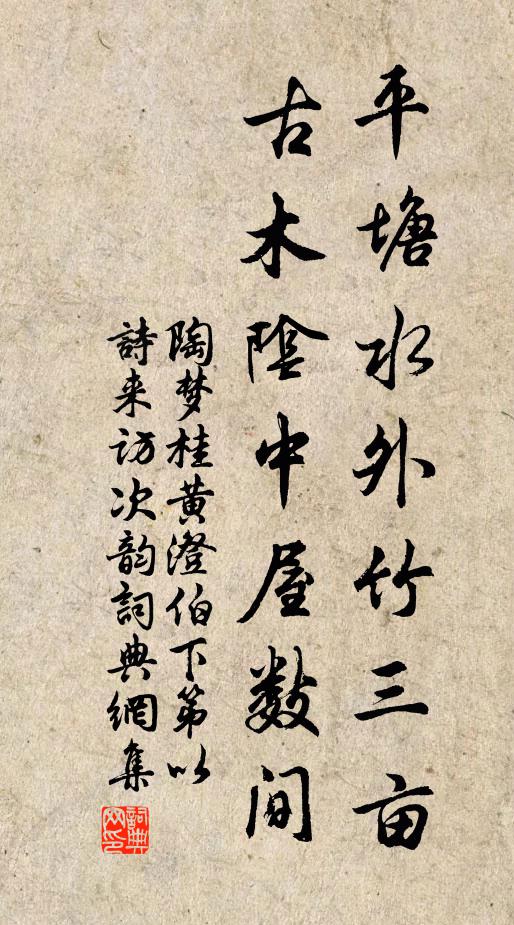 平塘水外竹三亩
古木陰中屋数间
陶梦桂黄澄伯下第以
詩来访次韵詞典網集
詞典网印